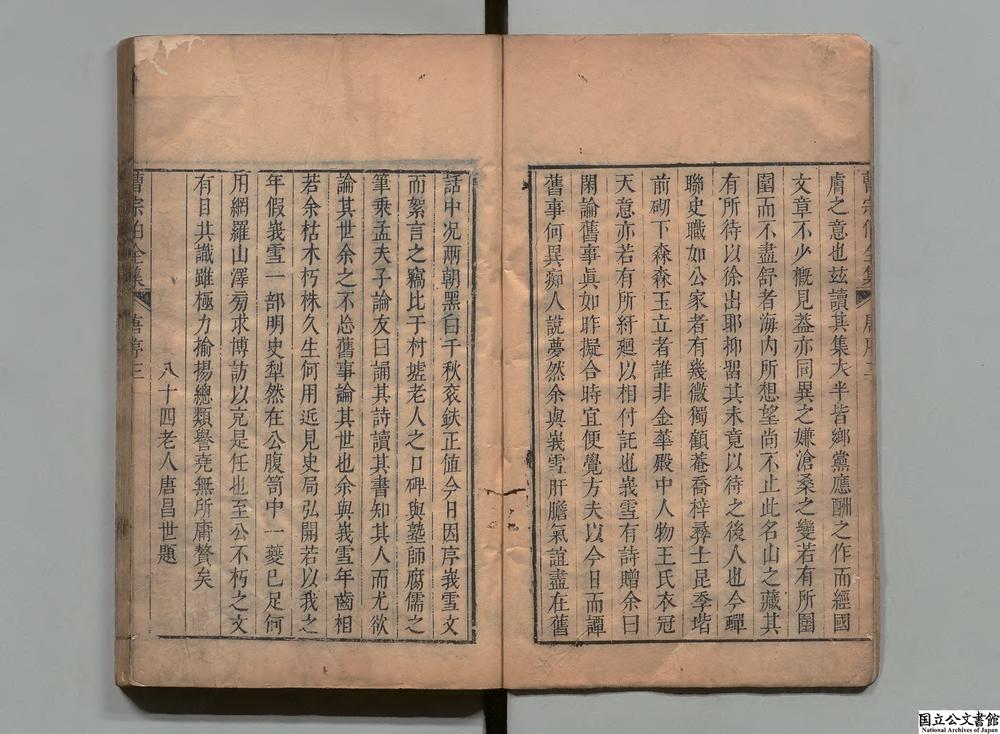 膚之意也玆讀其集大半皆鄉黨應酬之作而經國
文章不少槪見葢亦同異之嫌滄桑之變若有所囿
囿而不盡舒者海内所想望尚不止此名山之藏其
有所待以徐出耶抑畱其未竟以待之後人也今蟬
聯史職如公家者有幾微獨顧菴喬梓彞士昆季堦
前砌下森森玉立者誰非金華殿中人物王氏衣冠
天意亦若有所紆廻以相付託也峩雪有詩贈余曰
閑論舊事眞如昨擬合時宜便覺方夫以今日而譚
舊事何異痴人說夢然余與峩雪肝膽氣誼盡在舊
話中况兩朝黑白千秋衮鈇正值今日因序峩雪文
而絮言之竊比于村墟老人之口碑與塾師腐儒之
筆乗孟夫子論友曰誦其詩讀其書知其人而尤欲
論其世余之不忘舊事論其世也余與峩雪年齒相
若余枯木朽株久生何用近見史局弘開若以我之
年假峩雪一部明史犁然在公腹笥中一夔已足何
用網羅山澤旁求博訪以克是任也至公不朽之文
有目共識雖極力揄揚總類譽堯無所庸贅矣
八十四老人唐昌世題
曹宗伯全集
唐序三
国立公文書館
National Archives of Japan